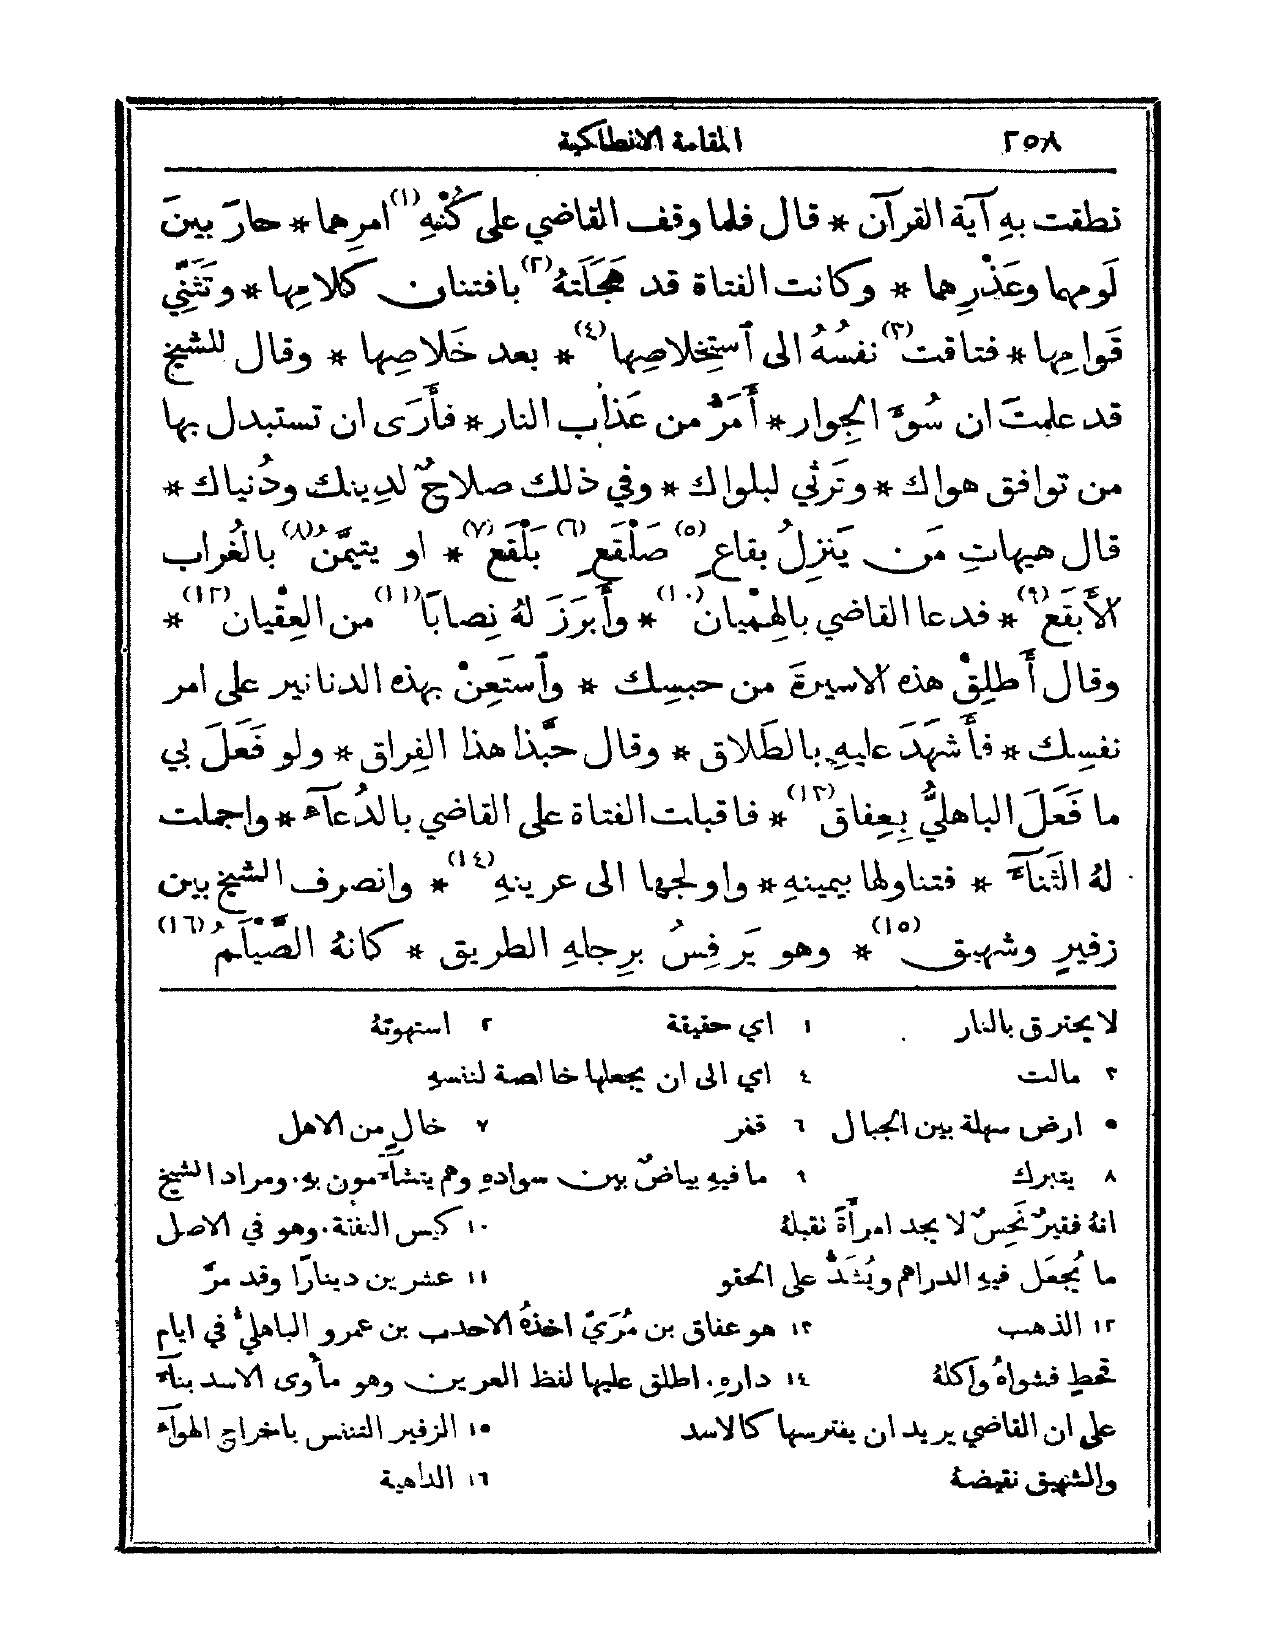 ٢٥٨ المقامة الانطاكية
نطقت بهِ آية القرآن * قال فلما وقف القاضي على كُنْهِ(١) امرِهما * حارَ بينَ
لَومِها وعَذْرِهما * وكانت الفتاة قد هَجَلَتهُ(٢) بافتنان كلامِها * وتَثَنِّي
قَوامِها * فتاقت(٣) نفسُهُ الى اُستِخلاصِها(٤) * بعد خَلاصِها * وقال للشيخ
قد علِمتَ ان سُوءَ الجِوار * أَمَرُّ من عَذاب النار * فأَرَى ان تستبدل بها
من توافق هواك * وتَرثي لبلواك * وفي ذلك صلاحٌ لدِينك ودُنياك *
قال هيهاتِ مَن يَنزِلُ بقاعٍ(٥) صَلْقَعٍ(٦) بَلْقَعٍ(٧) * او يتيمَّنُ(٨) بالغُراب
الأَبقَعِ(٩) * فدعا القاضي بالهِمْيان(١٠) * وأَبرَزَ لهُ نِصابًا(١١) من العِقْيان(١٢) *
وقال أَطلِقْ هذه الاسيرةَ من حبسِك * وأستَعِنْ بهذه الدنانير على امر
نفسِك * فأَشهَدَ عليهِ بالطَلاق * وقال حبَّذا هذا الفِراق * ولو فَعَلَ بي
ما فَعَلَ الباهليُّ بِعِفاق(١٣) * فاقبلت الفتاة على القاضي بالدُعآء * واجملت
لهُ الثَنآءَ * فتناولها بيمينهِ * واولجها الى عرينهِ(١٤) * وانصرف الشيخ بين
زفيرٍ وشهيق(١٥) * وهو يَرفِسُ برِجلهِ الطريق * كانهُ الصَّيْلَمُ(١٦)
لا يحترق بالنار ١ اي حقيقة ٢ استهوتهُ
٣ مالت ٤ اي الى ان يجعلها خالصة لنفسهِ
٥ ارض سهلة بين الجبال ٦ قفر ٧ خالٍ من الاهل
٨ يتبرك ٩ ما فيهِ بياضٌ بين سوادهِ وهم يتشآءَمون بهِ. ومراد الشيخ
انهُ فقيرٌ نَحِسٌ لا يجد امرأَةً تقبلهُ ١٠ كيس النفقة. وهو في الاصل
ما يُجعَل فيهِ الدراهم ويُشَدُّ على الحقو ١١ عشرين دينارًا وقد مرَّ
١٢ الذهب ١٣ هو عفاق بن مُرَيّ اخذهُ الاحدب بن عمرو الباهليّ في ايام
قحطٍ فشواهُ واكلهُ ١٤ دارهِ. اطلق عليها لفظ العرين وهو مأوى الاسد بنآءً
على ان القاضي يريد ان يفترسها كالاسد ١٥ الزفير التنفس باخراج الهوآء
والشهيق نقيضهُ ١٦ الداهية